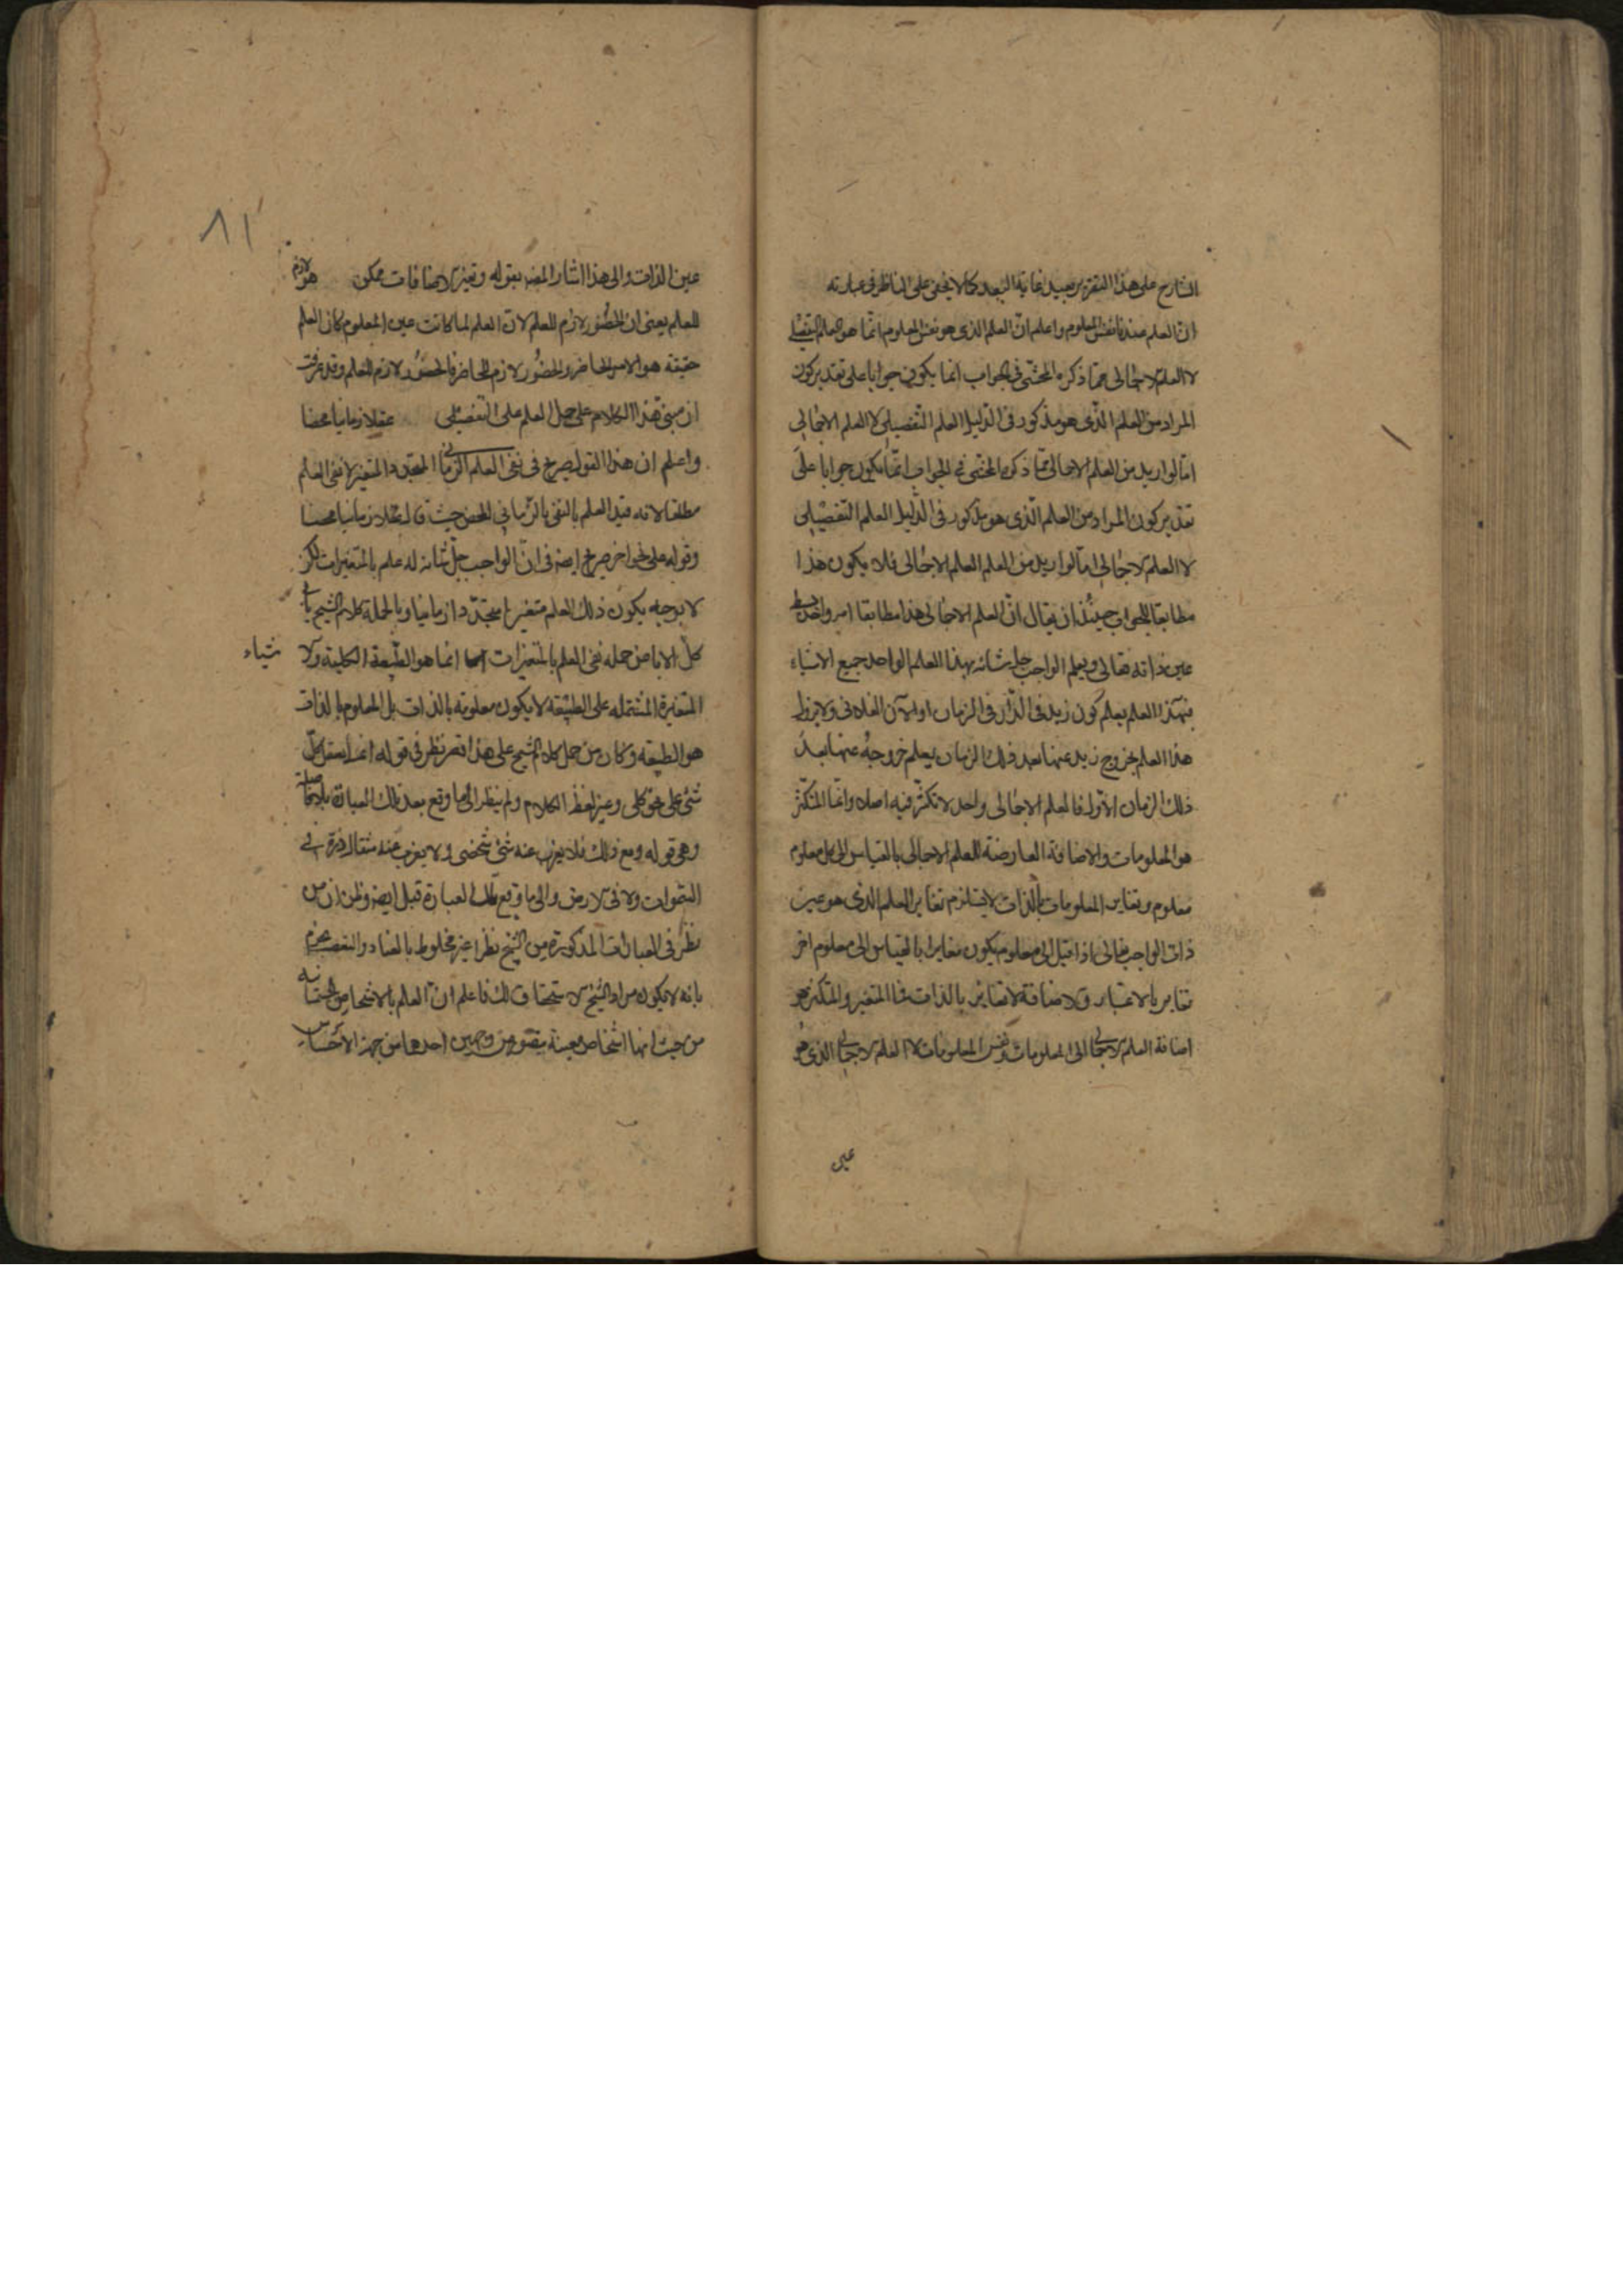 الشارح على هذا التقرير بعيد غاية البعد كما لا يخفى على الناظر في عبارته
ان العلم عندنا نفس المعلوم واعلم ان العلم الذي هو نفس المعلوم انما هو العلم التفصيلي
لا العلم الاجمالي فما ذكره المحشي في الجواب انما يكون جوابا على تقدير كون
المراد من العلم الذي هو مذكور في الدليل العلم التفصيلي لا العلم الاجمالي
اما لو اريد من العلم الاجمالي فما ذكره المحشي في الجواب انما يكون جوابا على
تقدير كون المراد من العلم الذي هو مذكور في الدليل العلم التفصيلي
لا العلم الاجمالي اما لو اريد من العلم العلم الاجمالي فلا يكون هذا
مطابقا للجواب حينئذ ان يقال ان العلم الاجمالي هذا مطابقا امر واحد بسيط
عين ذاته تعالى ويعلم الواجب جل شانه بهذا العلم الواحد جميع الاشياء
فبهذا العلم يعلم كون زيد في الدار في الزمان او الآن الفلاني ولا يزول
هذا العلم بخروج زيد عنها بعد ذلك الزمان يعلم خروجه عنها بعد
ذلك الزمان الاول فالعلم الاجمالي واحد لا تكثر فيه اصلا وانما المتكثر
هو المعلومات والاضافة العارضة للعلم الاجمالي بالقياس الى كل معلوم
معلوم وتغاير المعلومات بالذات لا يستلزم تغاير العلم الذي هو عين
ذات الواجب تعالى اذا قيل الى معلوم يكون مغايرا بالقياس الى معلوم اخر
تغاير بالاعتبار والاضافة لا تغاير بالذات فالمتغير والمتكثر هو
اضافة العلم الاجمالي الى المعلومات ونفس المعلومات لا العلم الاجمالي الذي هو
عين
٨١
عين الذات والى هذا اشار المصه بقوله وتغير الاضافات ممكن هو لازم
للعلم يعني ان الحضور لازم للعلم لان العلم لما كانت عين المعلوم كان العلم
حقيقة هو الامر الحاضر والحضور لازم للحاضر فالحضور لازم للعلم وقد عرفت
ان مبنى هذا الكلام على حمل العلم على التفصيلي عقلا زمانيا محضا
واعلم ان هذا القول صريح في نفي العلم الزماني المتجدد والمتغير لا نفي العلم
مطلقا لانه قيد العلم بالنفي بالزماني المحض حيث قال عقلا زمانيا محضا
وقوله على نحو اخر صريح ايضه في ان الواجب جل شانه له علم بالمتغيرات لكن
لا بوجه يكون ذلك العلم متغيرا متجددا زمانيا وبالجملة كلام الشيخ يأبى
كل الاباء من حمله نفي العلم بالمتغيرات انما هو الطبيعة الكلية والاشياء
المتغيرة المشتمله على الطبيعة لا يكون معلومة بالذات بل المعلوم بالذات
هو الطبيعه وكان من حمل كلام الشيخ على هذا قصر نظر في قوله انما يعقل كل
شئ على نحو كلي وغير لفظ الكلام ولم ينظر الى ما وقع بعد تلك العبارة بلا فاصلة
وهي قوله ومع ذلك فلا يعزب عنه شئ شخصي ولا يعزب عنه مثقال ذرة في
السموات ولا في الارض والى ما وقع تلك العبارة قبل ايضه وظن ان من
نظر في العبارات المذكورة من الشيخ نظرا غير مخلوط بالعناد والتعصب يجزم
بانه لا يكون مراد الشيخ فاعلم ان العلم بالاشخاص الجسمانية
من حيث انها اشخاص معينة يتصور من وجهين احدهما من جهة الاحساس